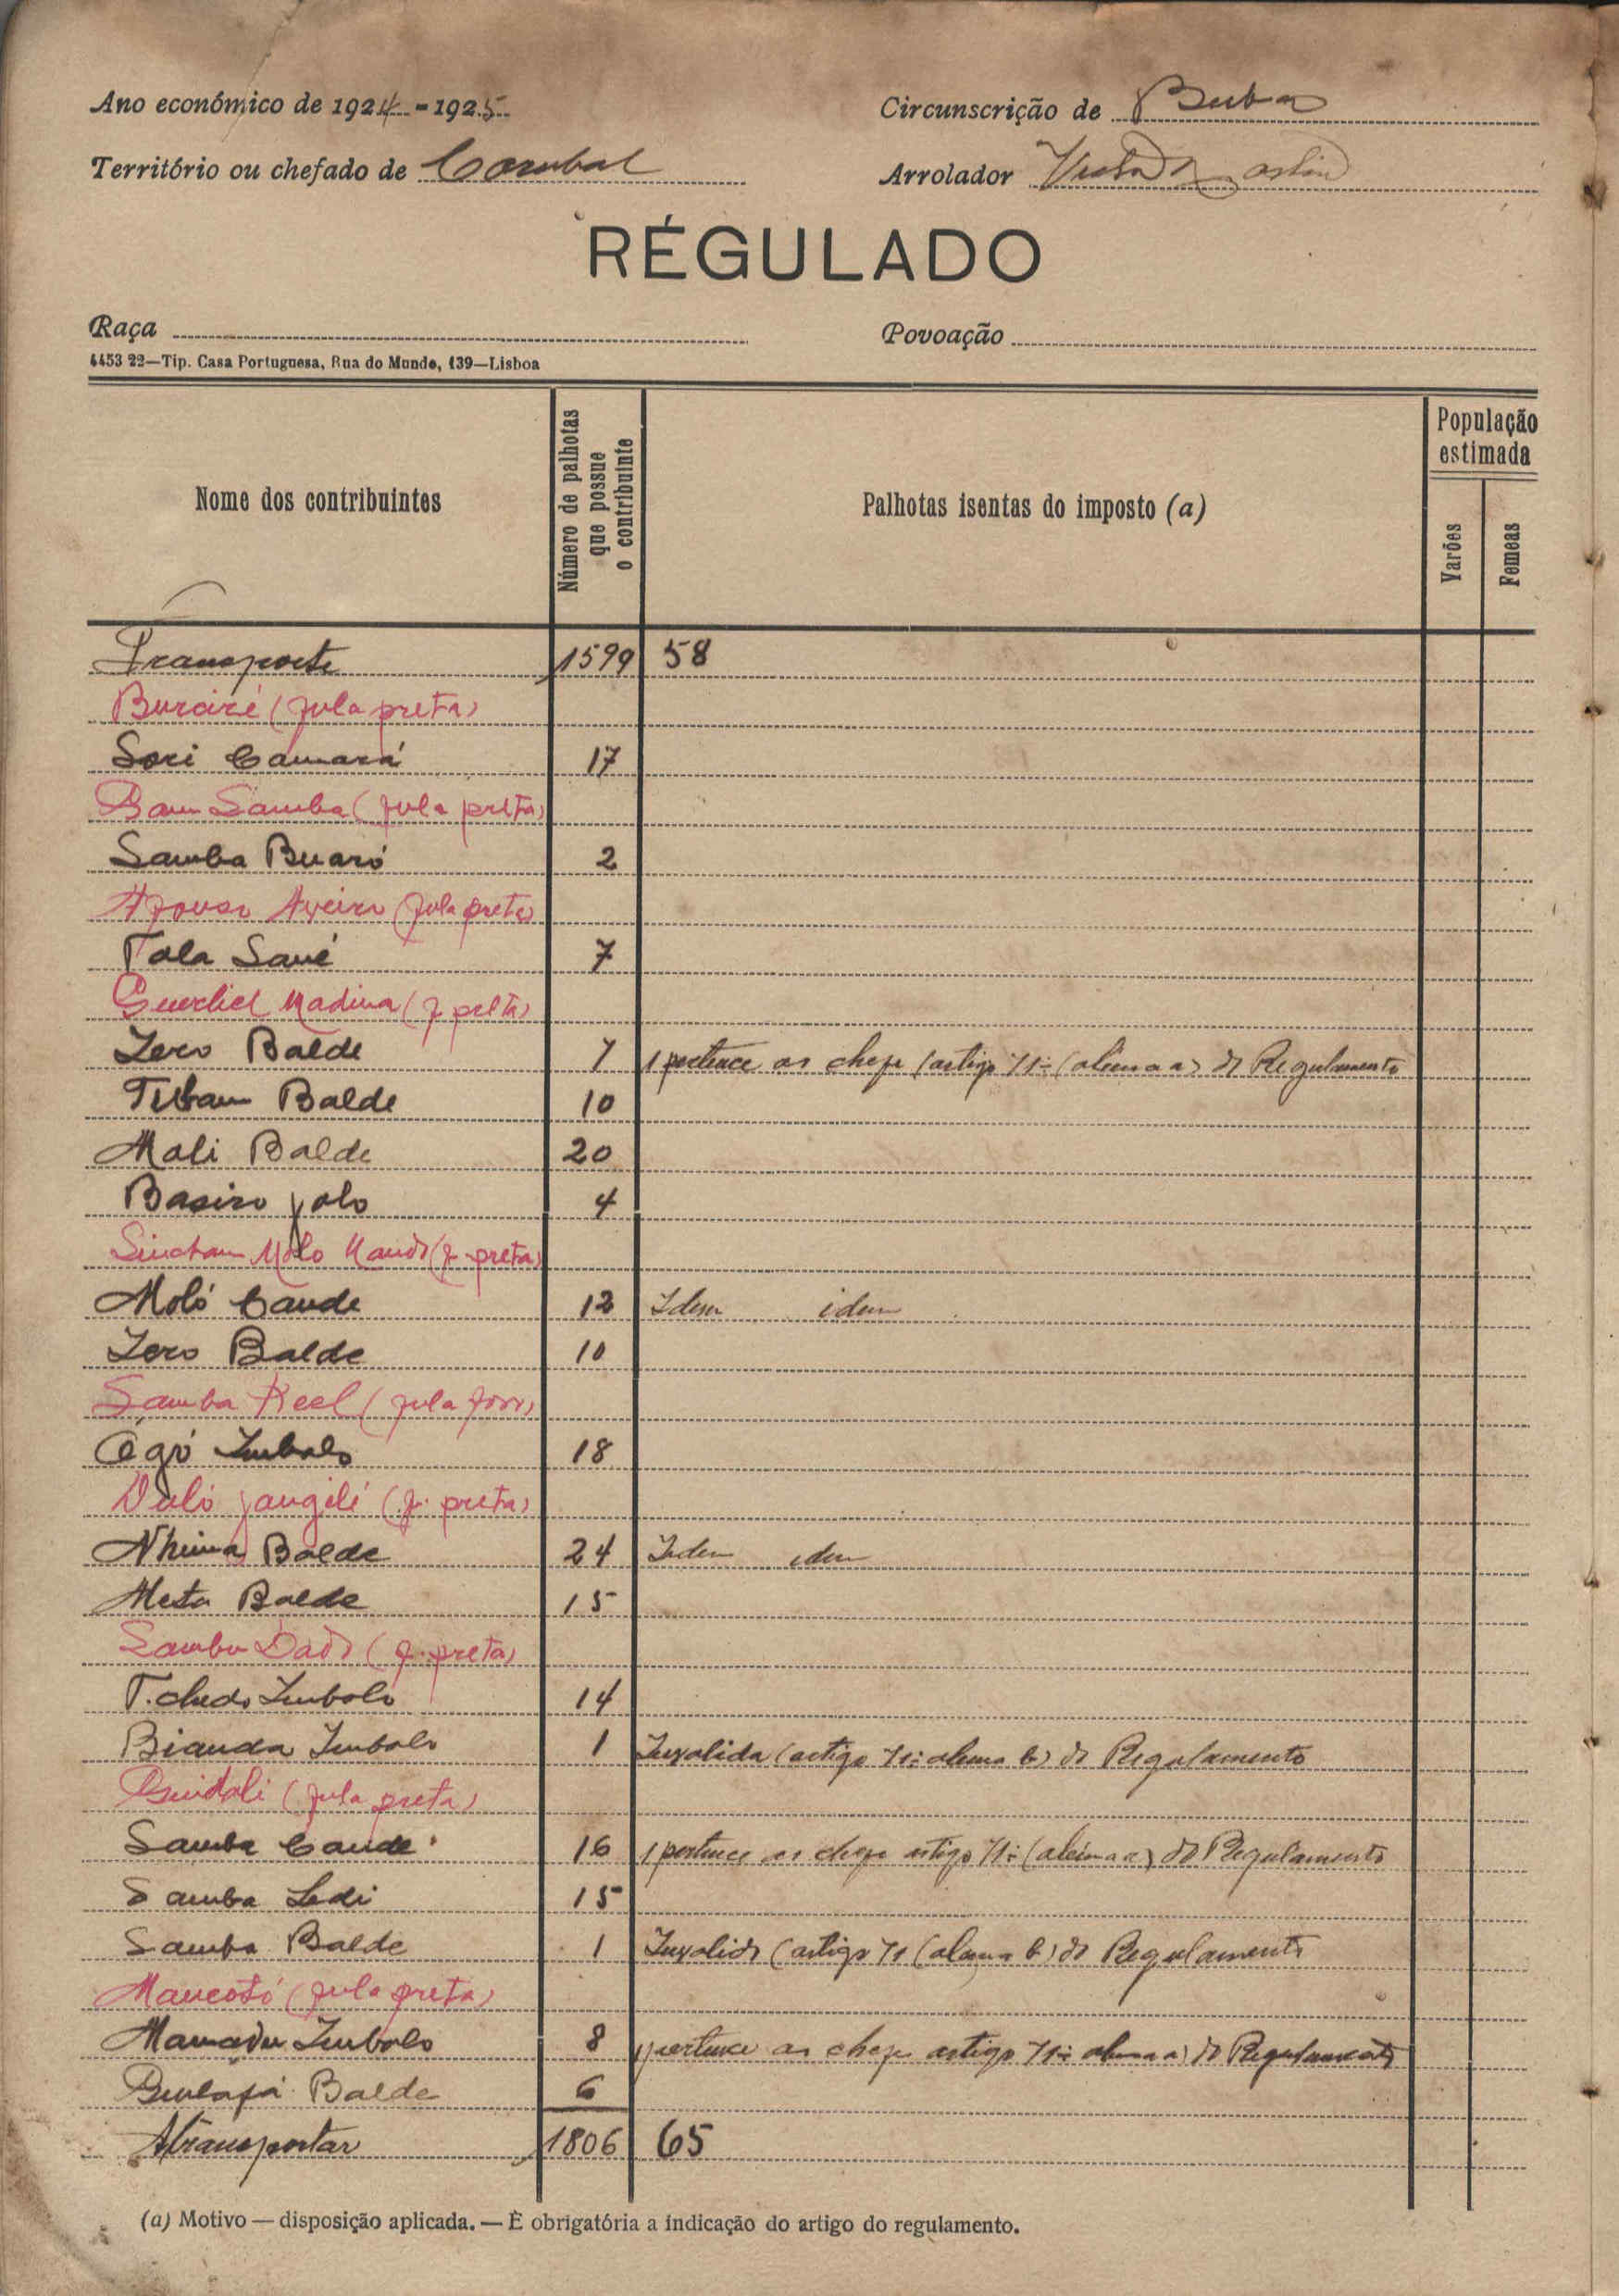 Ano económico de 1924-1925
Circunscrição de Buba
Território ou chefado de Corubal
Arrolador
RÉGULADO
Raça
Povoação
4453 22—Tip. Casa Portuguesa, Rua do Mundo, 139—Lisboa
Nome dos contribuintes
Número de palhotas que possue o contribuinte
Palhotas isentas do imposto (a)
População estimada
Varões
Femeas
Transporte 1599 58
Burciré (fula preta)
Sori Camará 17
Bam Samba (fula preta)
Samba Buaró 2
Afonso Aveiro (fula preta)
Tala Sané 7
Madina (f. preta)
Iero Balde 7 1 pertence ao chefe (artigo 71º (alinea a) do Regulamento
Balde 10
Mali Balde 20
Basiro Jolo 4
Sincham Molo Kandi (f. preta)
Moló Cande 12 Idem idem
Iero Balde 10
Samba Keel (fula forro)
Ogó Imbalo 18
Duló Jangili (f. preta)
Nhima Balde 24 Idem idem
Meta Balde 15
Samba Dado (f. preta)
T.chedo Imbolo 14
Bianda Imbalo 1 Invalida (artigo 71º alinea b) do Regulamento
Guidali (fula preta)
Samba Cande 16 1 pertence ao chefe artigo 71º (alinea a) do Regulamento
Samba Ledi 15
Samba Balde 1 Invalido (artigo 71 (alinea b) do Regulamento
Mancotó (fula preta)
Mamadu Imbalo 8 1 pertence ao chefe artigo 71º alinea a) do Regulamento
Balde 6
A transportar 1806 65
(a) Motivo — disposição aplicada. — É obrigatória a indicação do artigo do regulamento.